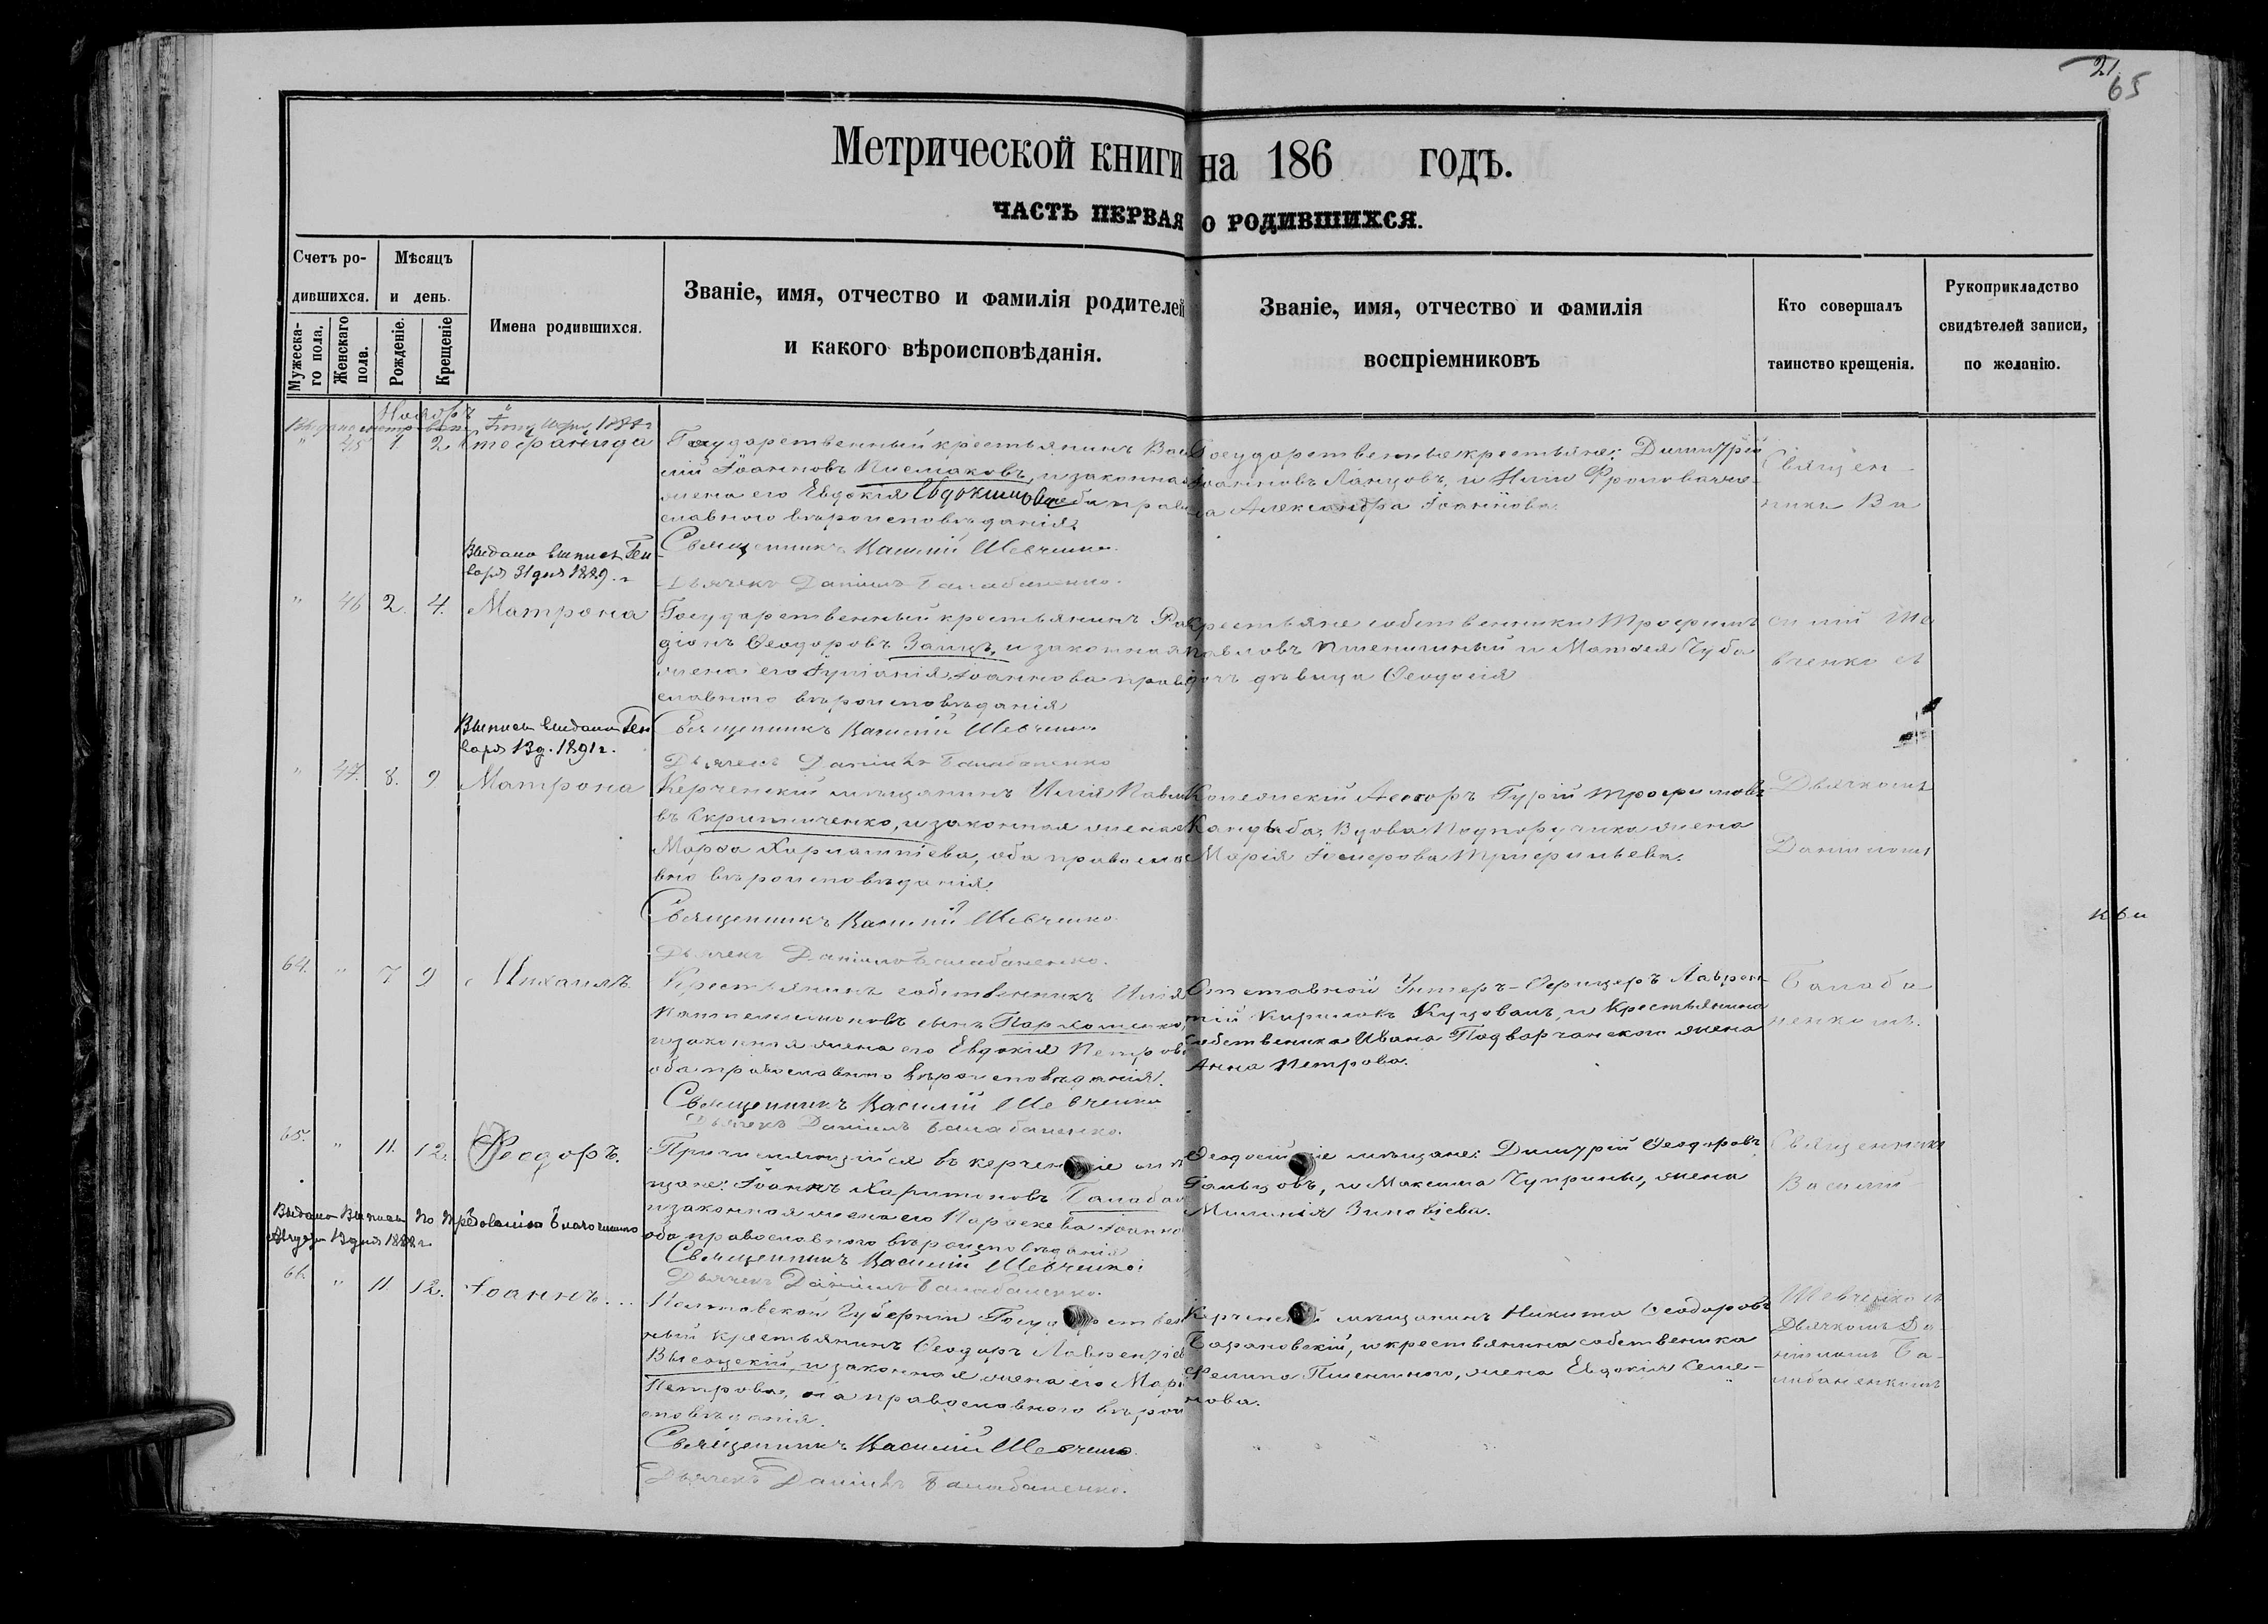 21.
65
Метрической книги на 186 годъ.
ЧАСТЬ ПЕРВАЯ О РОДИВШИХСЯ.
Счетъ родившихся.
Мужескаго пола.
Женскаго пола.
Мѣсяцъ и день.
Рожденіе.
Крещеніе
Имена родившихся.
Званіе, имя, отчество и фамилія родителей
и какого вѣроисповѣданія.
Званіе, имя, отчество и фамилія
воспріемниковъ
Кто совершалъ
таинство крещенія.
Рукоприкладство
свидѣтелей записи,
по желанію.
Ноябрь
" 45 1 2 Стефанида
Государственный крестьянинъ Васи
лій Іоанновъ и законная
жена его Евдокія Евдокимова оба право
славного вѣроисповѣданія.
Священникъ Василій Шевченко.
Дьячекъ Даніилъ Балабаненко.
Государственные крестьяне: Димитрій
Іоанновъ Ланцовъ, и Иліи Фролова же
на Александра Іоаннова.
Священ
никъ Ва
Выдана выпись Ген
варя 31 дня 1889 г.
" 46 2. 4. Матрона
Государственный крестьянинъ Ро
діонъ Ѳеодоровъ Заицъ, и законная
жена его Іуліанія Іоаннова право
славного вѣроисповѣданія
Священникъ Василій Шевченко
Дьячекъ Даніилъ Балабаненко
крестьяне собственники Трофимъ
Павловъ Пшеничный и Матѳея Чуба
дочь дѣвица Ѳеодосія
силій Ше
вченко съ
Выпись выдана Ген
варя 13 д. 1891 г.
" 47. 8. 9 Матрона
Керченскій мѣщанинъ Илія Павло
въ Скрипниченко, и законная жена е
Марѳа Харлампіева, оба православ
вно вѣроисповѣданія.
Священникъ Василій Шевченко
Дьячекъ Даніилъ Балабаненко.
Колежскій Асесоръ Гурій Трофимовъ
Кандыба, Вдова Подпоручика жена
Марія
Дьячкомъ
Даниломъ
64. " 7 9 Михаилъ
Крестьянинъ собственникъ Илія
Пантелимоновъ сынъ Пархоменко,
и законная жена его Евдокія Петрова
оба православно вѣроисповѣданія.
Священникъ Василій Шевченко
Дьячекъ Даніилъ Балабаненко.
Отставной Унтеръ-Офицеръ Лаврен
тій Кириловъ и Крестьянина
Собственика Ивана Подварчанского жена
Анна Петрова.
Балаба
ненкомъ.
65. " 11. 12. Ѳеодоръ.
Причисляющійся въ керченскіе мѣ
щане: Іоаннъ Харитоновъ Балабан
и законная жена его Параскева Іоанно
оба православного вѣроисповѣданія
Священникъ Василій Шевченко.
Дьячекъ Даніилъ Балабаненко.
Ѳеодосійскіе мѣщане: Димитрій Ѳеодоровъ
Гальцовъ, и Максима Чуприны, жена
Миланія Зиновіева.
Священникъ
Василій
Выдана Выпись по требованію Благочинно
Августа 12 дня 1882 г.
66. " 11 12. Іоаннъ...
Полтавской Губерніи Государствен
ный крестьянинъ Ѳеодоръ Лаврентіев
Высоцкій, и законная жена его Марі
Петрова, оба православного вѣрои
сповѣданія.
Священникъ Василій Шевченко.
Дьячекъ Даніилъ Балабаненко.
Керченскій мѣщанинъ Никита Ѳеодоровъ
Барановскій, и крестьянина собственика
Филипа Пшеничного, жена Евдокія Семе-
нова.
Шевченко съ
Дьячкомъ Да
ніиломъ Ба
лабаненкомъ